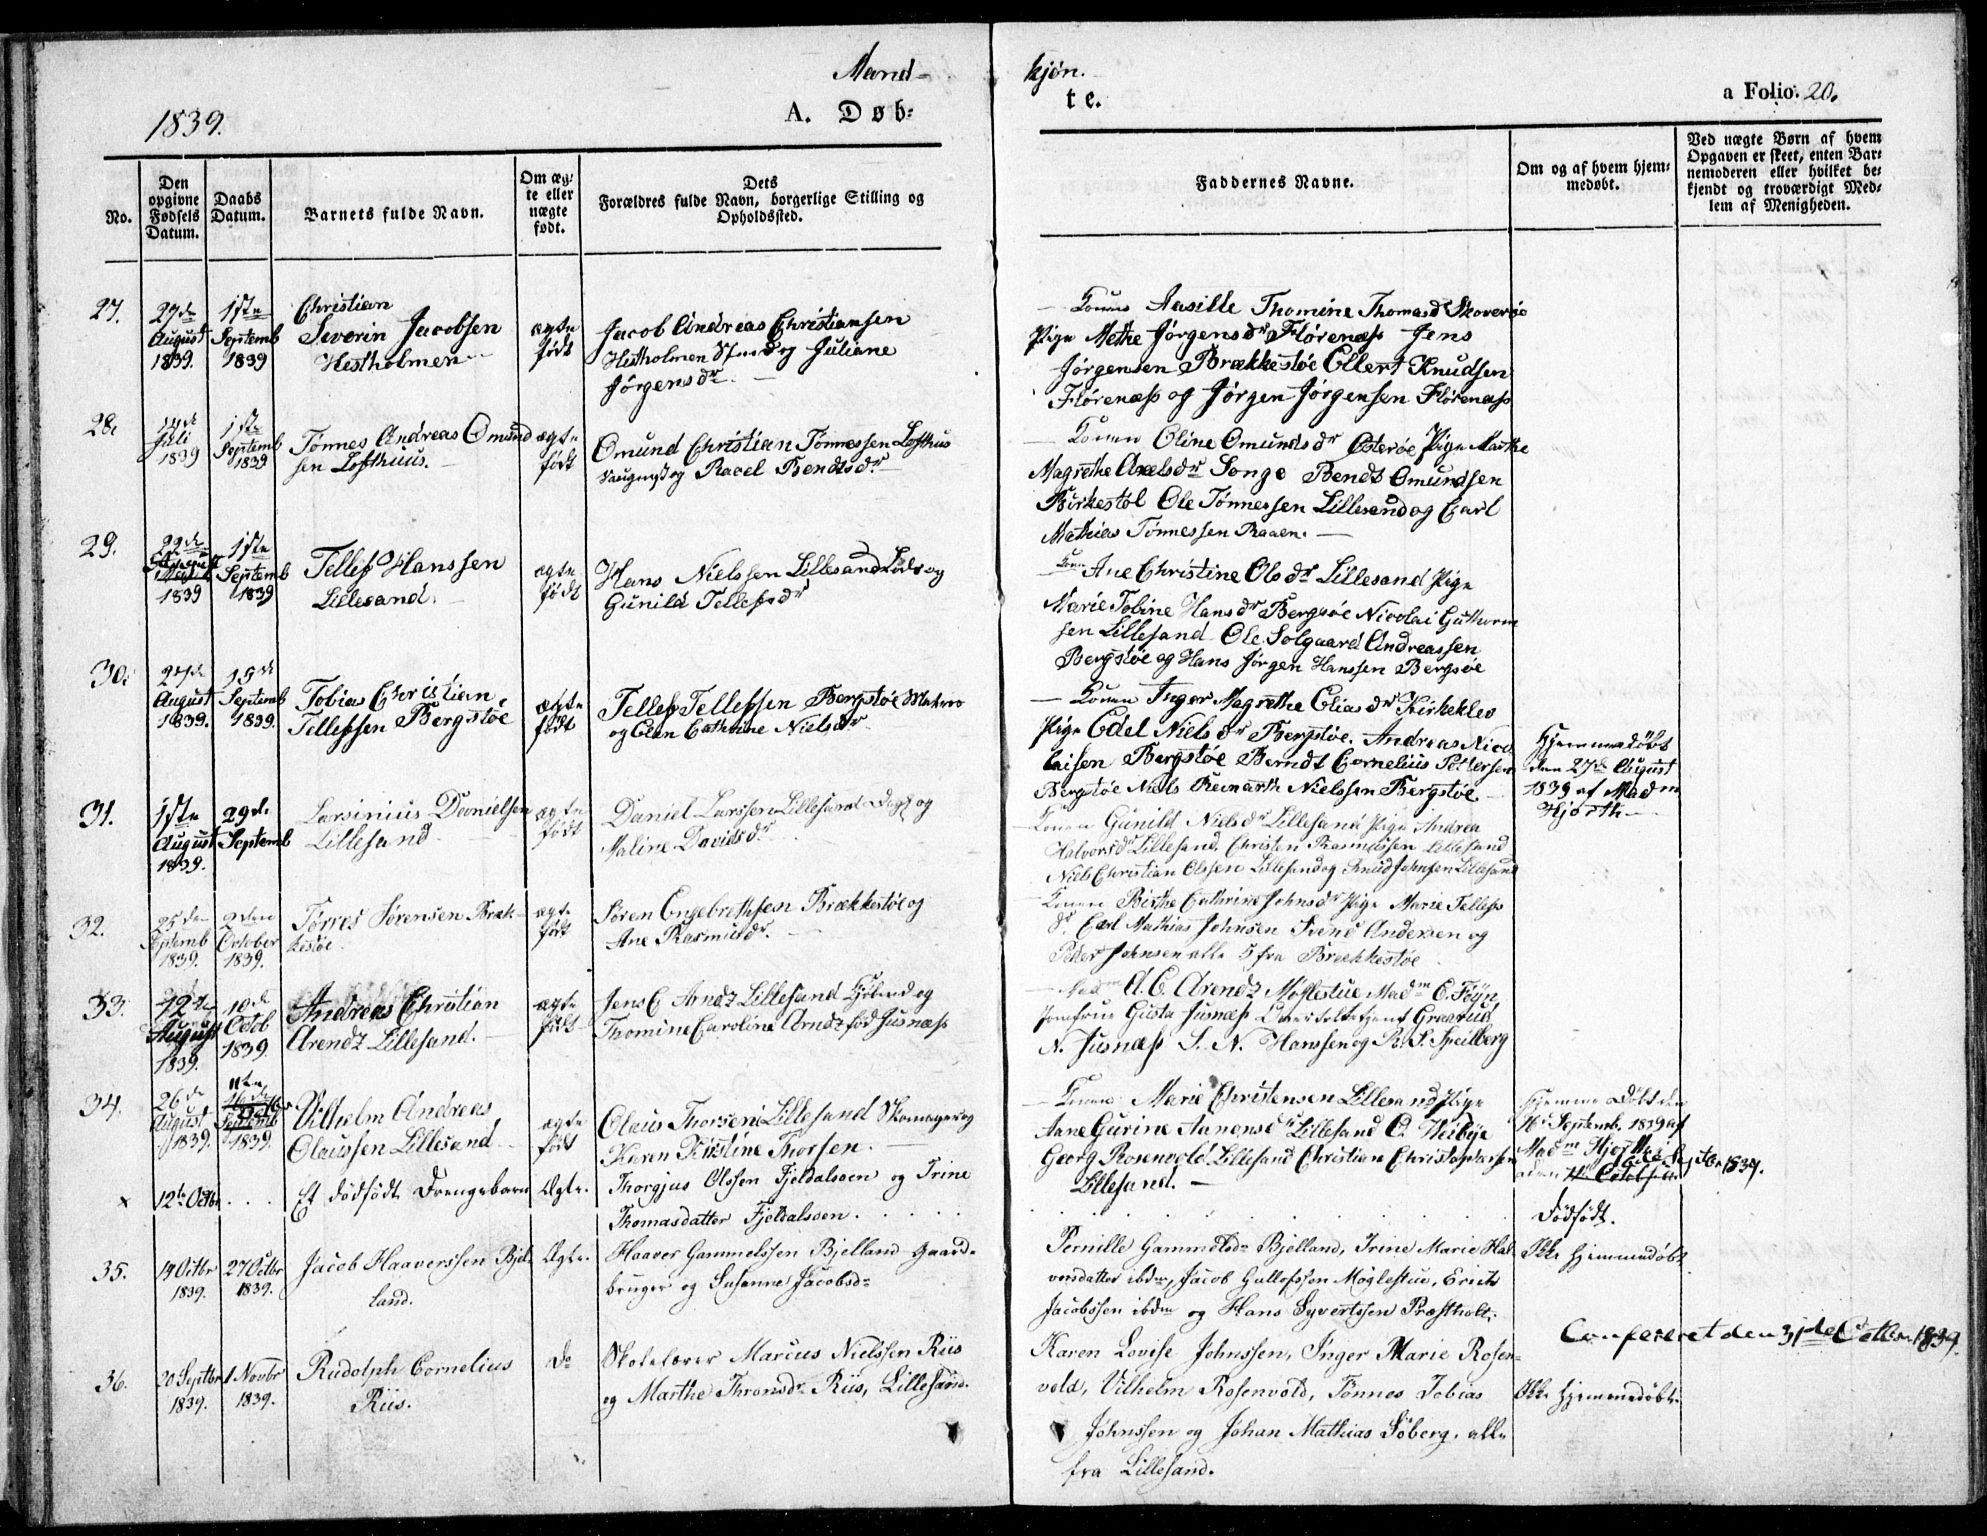 Mand-
kjøn.
1839.
A. Døb:
te.
a Folio: 20.
No.
Den opgivne Fødsels Datum.
Daabs Datum.
Barnets fulde Navn.
Om ægte eller nægte født.
Dets
Forældres fulde Navn, borgerlige Stilling og Opholdssted.
Faddernes Navne.
Om og af hvem hjemmedøbt.
Ved nægte Børn af hvem
Opgaven er skeet, enten Bar-
nemoderen eller hvilket be-
kjendt og troværdigt Med-
lem af Menigheden.
27.
27de August 1839.
1ste Septemb 1839
Christian
Severin Jacobsen
Hestholmen
ægte født
Jacob Andreas Christiansen
Hestholmen og Juliane
Jørgensdr.
Konen Aasille Thomine Thomasd Skoverøe
Pige Methe Jørgensdr Flørenæss Jens
Jørgensen Brækkestøe Ellert Knudsen
Flørenæss og Jørgen Jørgensen Flørenæss
28.
Juli 1839
1ste Septemb 1839
Tønnes Andreas Omund
sen Lofthuus.
ægte født
Omund Christian Tønnessen Lofthus
og Racel Bendtsdr
Konen Oline Omundsdr Østerøe Pige Marthe
Magrethe Axelsdr Songe Bendt Omundsen
Birkestøl Ole Tønnessen Lillesand og Carl
Mathias Tønnessen Raaen.
29.
22de 1839
1ste Septemb 1839
Tellef Hanssen
Lillesand.
ægte født
Hans Nielssen Lillesand Lods og
Gunild Tellefsdr
Kone Ane Christine Olsdr Lillesand Pige
Marie Tobine Hansdr Bergsøe Nicolai Guthorm
sen Lillesand Ole Solgaard Andreassen
Bergstøe og Hans Jørgen Hanssen Bergsøe
30.
27de August 1839.
15de Septemb 1839.
Tobias Christian
Tellefsen Bergstøe
ægte født
Tellef Tellefsen Bergstøe Matros
og Elen Cathrine Nielsdr
Konen Inger Magrethe Eliasdr Kirkeklev
Pige Edel Nielsdr Bergstøe. Andreas Nico
laisen Bergstøe Berndt Cornelius Pettersen
Bergstøe Niels Reinarth Nielssen Bergstøe.
Hjemmedøbt
den 27de August
1839 af Madm
Hjorth
31.
1ste August 1839.
29de Septemb
Larsinius Danielsen
Lillesand
ægte født
Daniel Larssen Lillesand og
Maline Davidsdr
Konen Gunild Nielsdr Lillesand Pige Andrea
Halvorsdr Lillesand Christen Rasmussen Lillesand
Niels Christian Olssen Lillesand og Knud Johnsen Lillesand
32.
25den Septemb 1839.
2den October 1839.
Tørres Sørensen Bræk-
kestøe.
ægte født
Søren Engebrethsen Brækkestøe og
Ane Rasmusdr.
Konen Birthe Cathrine Johnsdr Pige Marie Tellefs
dr. Carl Mathias Johnsen Svend Andersen og
Peder Johnsen alle 5 fra Brækkestøe
33.
12te August 1839.
10de Octob 1839.
Andreas Christian
Arendz Lillesand.
ægte født
Jens C Arndz Lillesand og
Thomine Caroline Arndz fød Jusnæss
Madm A. C. Arendz Møglestue Madm C. Føyn,
Jomfrue Gusta Jusnæss Graarud,
N. Jusnæss S. N. Hanssen og R. S. Speilberg
34.
26de August 1839.
11te
Septemb 1839.
Vilhelm Andreas
Olaussen Lillesand
ægte født
Olaus Thorsen Lillesand Skomager og
Karen Kistine Thorsen.
Konen Marie Christensen Lillesand Pige
Aane Gurine Aanensdr Lillesand C. Weibye
Georg Rosenvold Lillesand Christian Christophersen
Lillesand.
Hjemme Døbt den
16 Septemb. 1839 af
Madm Hjorth
den Septbr 1839.
x
12te Octbr
Et dødfødt Drengebarn
Ægte.
Thorgjus Olssen Fjeldalsoen og Trine
Thomasdatter Fjeldalsoen.
Dødfødt.
35.
14 Octbr 1839.
27 Octbr 1839.
Jacob Haaverssen Bjel-
land.
Ægte.
Haaver Gammelssen Bjelland Gaard-
bruger og Susanne Jacobsdr
Pernille Gammelsdr Bjelland, Trine Marie Hal-
versdatter ibdm, Jacob Gullofssen Møglestue, Erich
Jacobssen ibdm og Hans Syvertssen Præstholt.
Ikke hjemmedøbt
Confereret den 31te Octbr. 1839.
36.
20 Septbr 1839.
1 Novbr 1839.
Rudolph Cornelius
Riis.
Do
Skolelærer Marcus Nielssen Riis
og Marthe Thronsdr Riis, Lillesand.
Karen Lovise Johnssen, Inger Marie Rosen-
vold, Vilhelm Rosenvold, Tønnes Tobias
Johnssen og Johan Mathias Søberg, alle
fra Lillesand.
Ikke hjemmedøbt.